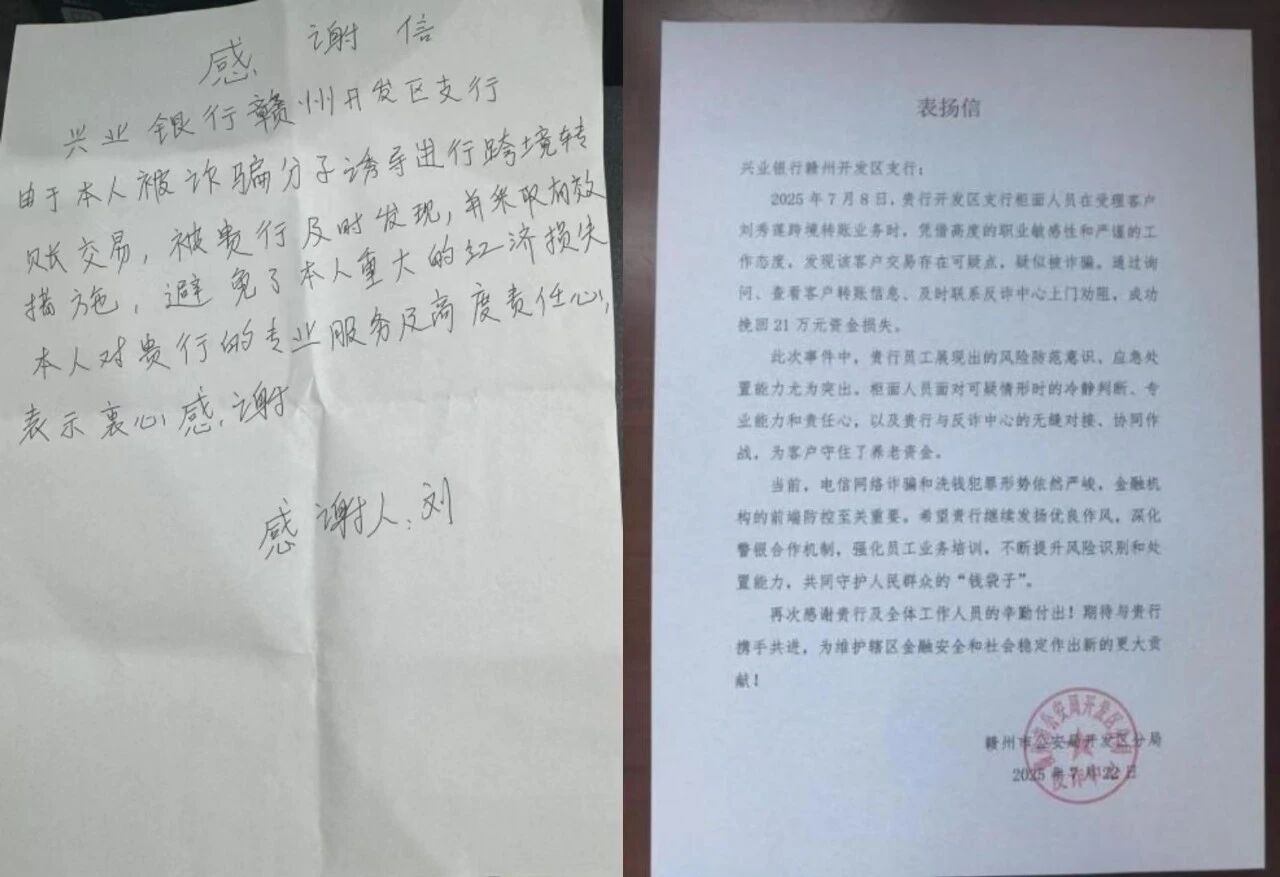 感谢信
兴业银行赣州开发区支行
由于本人被诈骗分子诱导进行跨境转
账交易，被贵行及时发现，并采取有效
措施，避免了本人重大的经济损失
本人对贵行的专业服务及高度责任心，
表示衷心感谢
感谢人：刘
表扬信
兴业银行赣州开发区支行：
2025年7月8日，贵行开发区支行柜面人员在受理客户
刘秀莲跨境转账业务时，凭借高度的职业敏感性和严谨的工
作态度，发现该客户交易存在可疑点，疑似被诈骗。通过询
问、查看客户转账信息、及时联系反诈中心上门劝阻，成功
挽回21万元资金损失。
此次事件中，贵行员工展现出的风险防范意识、应急处
置能力尤为突出。柜面人员面对可疑情形时的冷静判断、专
业能力和责任心，以及贵行与反诈中心的无缝对接、协同作
战，为客户守住了养老资金。
当前，电信网络诈骗和洗钱犯罪形势依然严峻，金融机
构的前端防控至关重要。希望贵行继续发扬优良作风，深化
警银合作机制，强化员工业务培训，不断提升风险识别和处
置能力，共同守护人民群众的“钱袋子”。
再次感谢贵行及全体工作人员的辛勤付出！期待与贵行
携手共进，为维护辖区金融安全和社会稳定作出新的更大贡
献！
赣州市公安局开发区分局
2025年7月22日